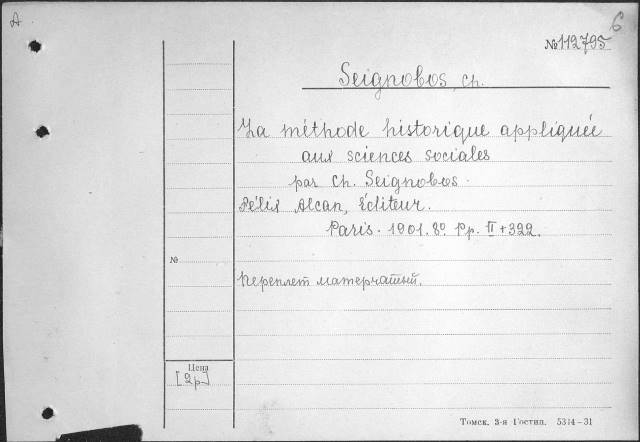 A
6
№112795
Seignobos, Ch.
La méthode historique appliquée
aux sciences sociales
par Ch. Seignobos.
Félix Alcan, Éditeur.
Paris. 1901. 8º. Pp. II + 322.
№
Переплет матерчатый.
Цена
[2р]
Томск. 3-я Гостип. 5314—31